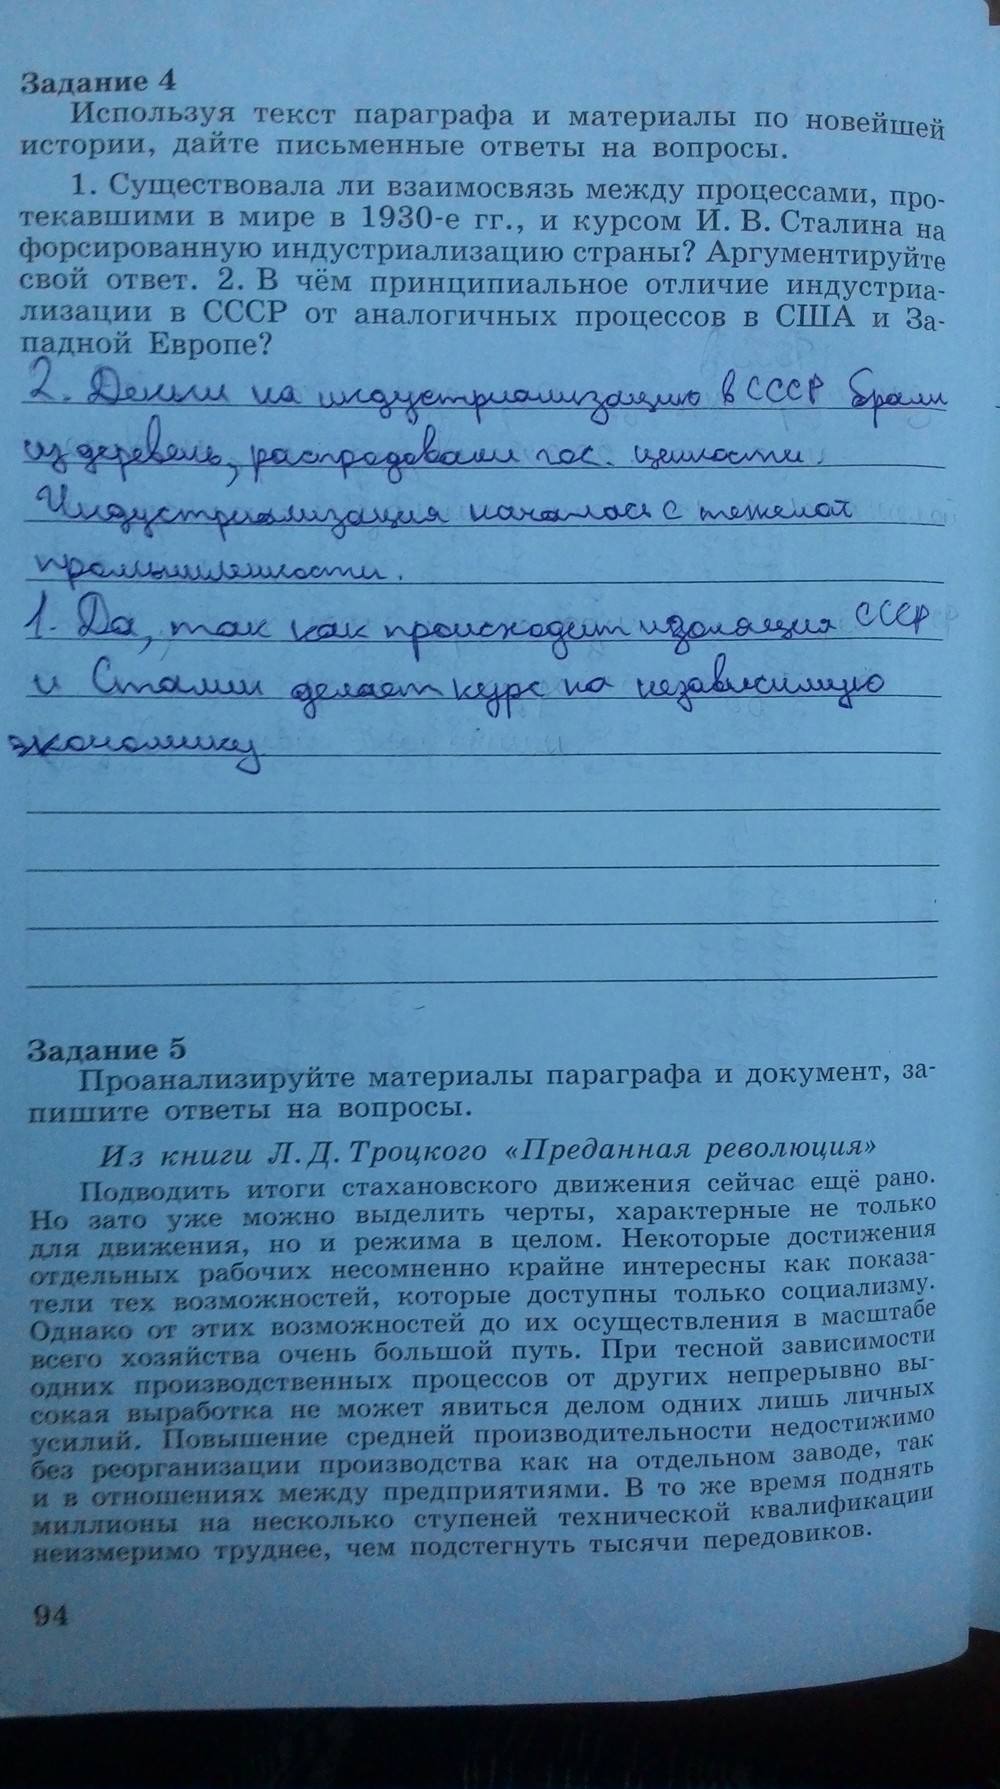 Задание 4
Используя текст параграфа и материалы по новейшей
истории, дайте письменные ответы на вопросы.
1. Существовала ли взаимосвязь между процессами, про-
текавшими в мире в 1930-е гг., и курсом И. В. Сталина на
форсированную индустриализацию страны? Аргументируйте
свой ответ. 2. В чём принципиальное отличие индустриа-
лизации в СССР от аналогичных процессов в США и За-
падной Европе?
2. Деньги на индустриализацию в СССР брали
из деревень, распродовали гос. ценности.
Индустриализация началась с тяжелой
промышленности.
1. Да, так как происходит изоляция СССР
и Сталин делает курс на независимую
экономику
Задание 5
Проанализируйте материалы параграфа и документ, за-
пишите ответы на вопросы.
Из книги Л. Д. Троцкого «Преданная революция»
Подводить итоги стахановского движения сейчас ещё рано.
Но зато уже можно выделить черты, характерные не только
для движения, но и режима в целом. Некоторые достижения
отдельных рабочих несомненно крайне интересны как показа-
тели тех возможностей, которые доступны только социализму.
Однако от этих возможностей до их осуществления в масштабе
всего хозяйства очень большой путь. При тесной зависимости
одних производственных процессов от других непрерывно вы-
сокая выработка не может явиться делом одних лишь личных
усилий. Повышение средней производительности недостижимо
без реорганизации производства как на отдельном заводе, так
и в отношениях между предприятиями. В то же время поднять
миллионы на несколько ступеней технической квалификации
неизмеримо труднее, чем подстегнуть тысячи передовиков.
94